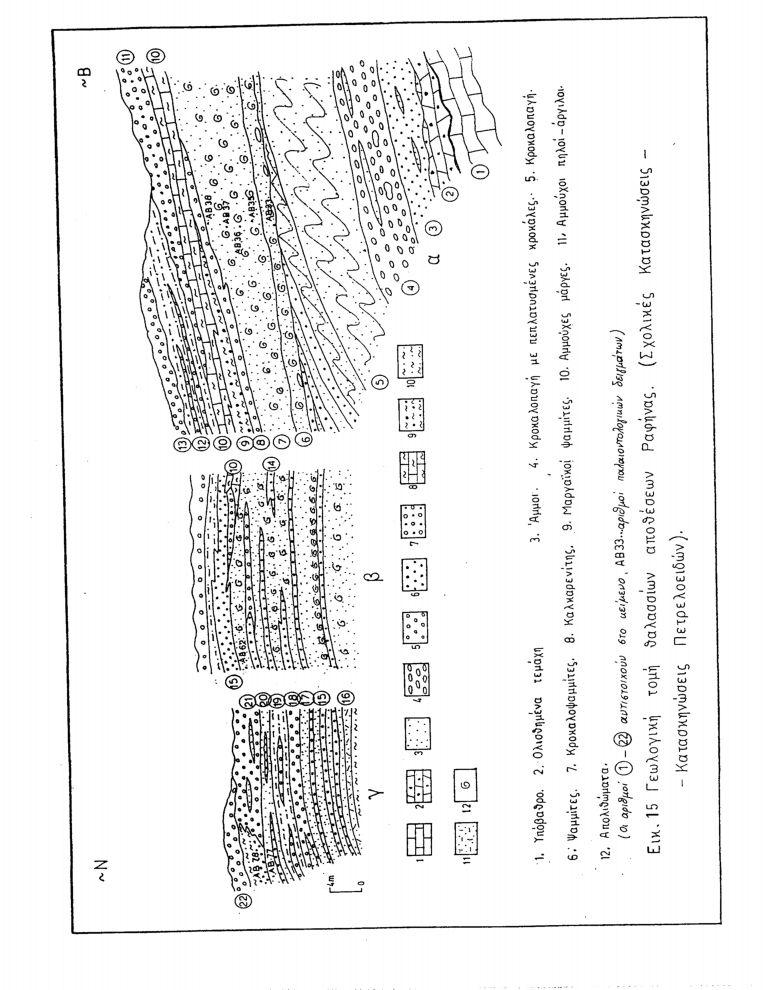 ~N
~B
11
10
13
12
10
9
8
7
6
5
4
3
2
1
AB38
AB37
AB36
AB35
AB33
15
AB62
10
14
22
AB 78
AB 77
21
20
19
18
17
15
16
4m
0
γ
β
α
1 2 3 4 5 6 7 8 9 10
11 12
1. Υπόβαθρο. 2. Ολισθημένα τεμάχη 3. Άμμοι. 4. Κροκαλοπαγή με πεπλατυσμένες κροκάλες. 5. Κροκαλοπαγή.
6. Ψαμμίτες. 7. Κροκαλοψαμμίτες. 8. Καλκαρενίτης. 9. Μαργαϊκοί ψαμμίτες. 10. Αμμούχες μάργες. 11. Αμμούχοι πηλοί-άργιλοι.
12. Απολιθώματα.
(Οι αριθμοί 1 – 22 αντιστοιχούν στο κείμενο, AB33...αριθμοί παλαιοντολογικών δειγμάτων)
Εικ. 15 Γεωλογική τομή θαλασσίων αποθέσεων Ραφήνας. (Σχολικές Κατασκηνώσεις –
- Κατασκηνώσεις Πετρελοειδών).